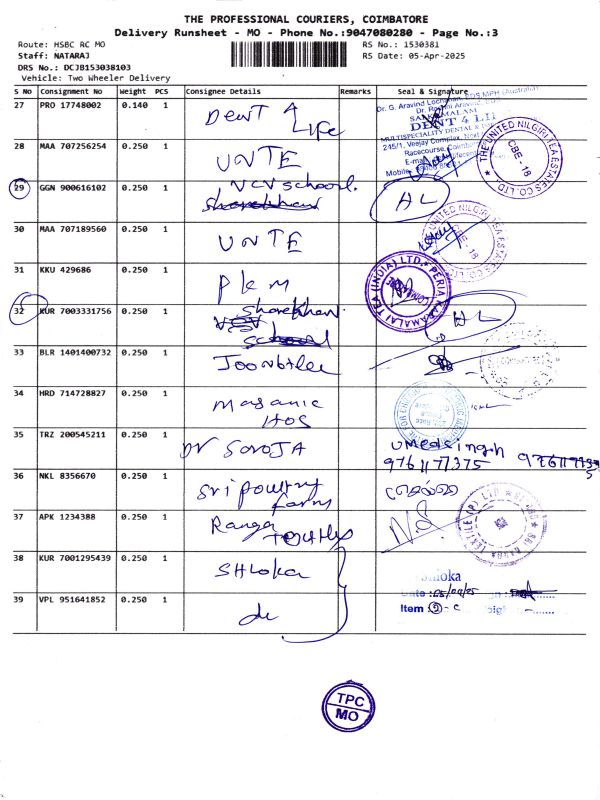 THE PROFESSIONAL COURIERS, COIMBATORE
Delivery Runsheet - MO - Phone No.:9047080280 - Page No.:3
Route: HSBC RC MO
RS No.: 1530381
Staff: NATARAJ
RS Date: 05-Apr-2025
DRS No.: DCJB153038103
Vehicle: Two Wheeler Delivery
S NO Consignment No Weight PCS Consignee Details Remarks Seal & Signature
27 PRO 17748002 0.140 1 DENT 4 Life
Dr. G. Aravind
DENT 4
MULTISPECIALITY DENTAL &
245/1, Veejay Complex,
Racecourse,
E-mail
Mobile
28 MAA 707256254 0.250 1 UNTE
THE UNITED NILGIRI TEA ESTATES CO LTD. CBE - 18
29 GGN 900616102 0.250 1 VCV school. HL
Sharekhan
30 MAA 707189560 0.250 1 UNTE
UNITED NILGIRI TEA ESTATES CBE 18
31 KKU 429686 0.250 1 PKM
PERIA KARAMALAI TEA (INDIA) LTD.
32 KUR 7003331756 0.250 1 Sharekhan HL
VCV
school
33 BLR 1401400732 0.250 1 Joonbilee
34 HRD 714728827 0.250 1 Masanic
Hos
35 TRZ 200545211 0.250 1 Dr SoroJA
Umedsingh
9761177375
36 NKL 8356670 0.250 1 Sri poultry
farms
37 APK 1234388 0.250 1 Ranga
TEXTILE (P) LTD
38 KUR 7001295439 0.250 1 SHLoka
Shloka
Date :05/04/25
39 VPL 951641852 0.250 1 do
Item :
TPC
MO